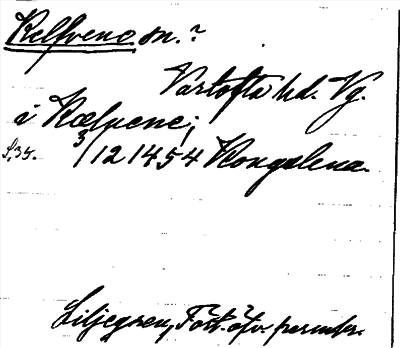 Kelfvene sn.?
Vartofta hd. Vg.
i Kælvene;
S. 35. 3/12 1454 Kongælena.
Liljegren, Fört. öfv. permbr.